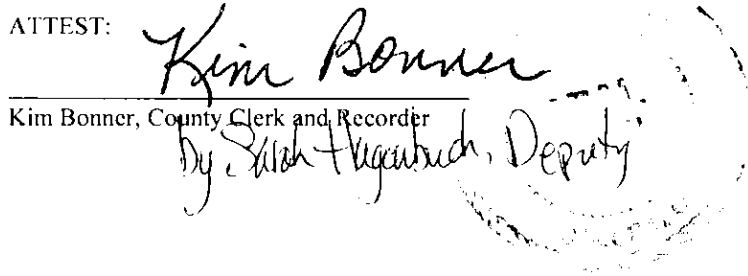 ATTEST:
Kim Bonner
Kim Bonner, County Clerk and Recorder
by Sarah Hugenbuch, Deputy